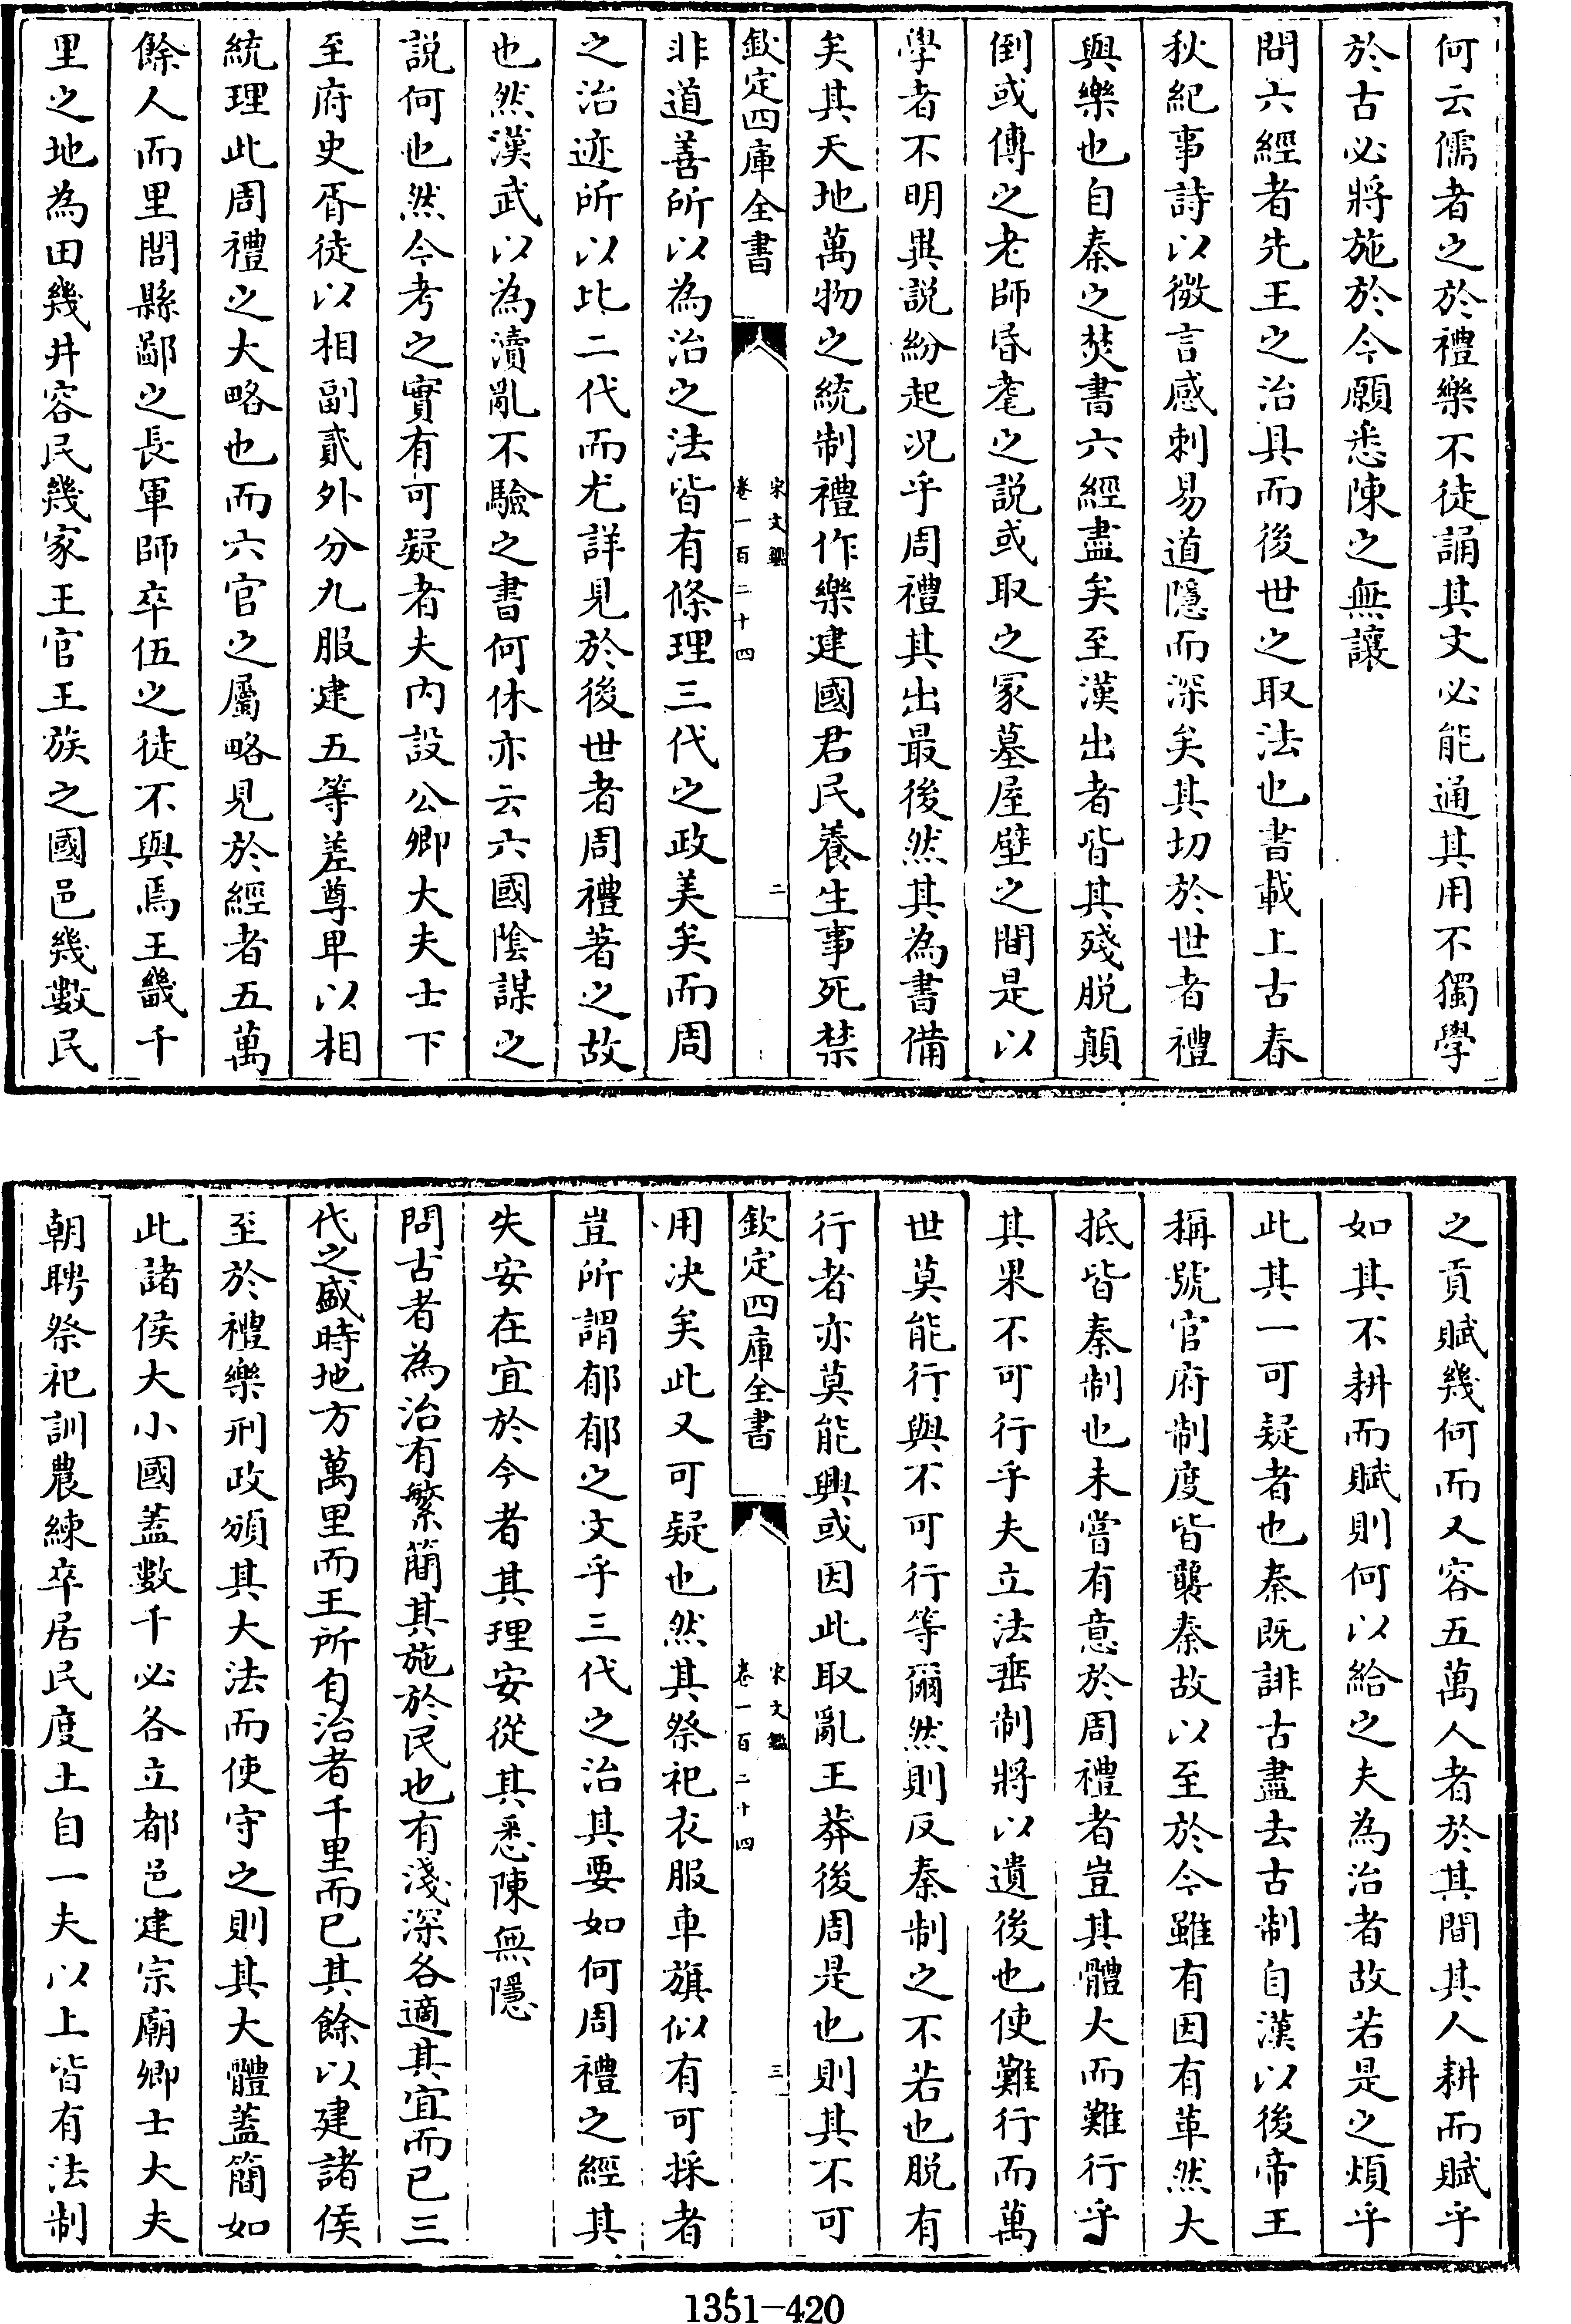 何云儒者之於禮樂不徒誦其文必能通其用不獨學
於古必將施於今願悉陳之無讓
問六經者先王之治具而後世之取法也書載上古春
秋紀事詩以微言感刺易道隱而深矣其切於世者禮
與樂也自秦之焚書六經盡矣至漢出者皆其殘脱顛
倒或傳之老師昏耄之説或取之冢墓屋壁之間是以
學者不明異説紛起况乎周禮其出最後然其為書備
矣其天地萬物之統制禮作樂建國君民養生事死禁
欽定四庫全書
宋文鑑
卷一百二十四
二
非道善所以為治之法皆有條理三代之政美矣而周
之治迹所以比二代而尤詳見於後世者周禮著之故
也然漢武以為瀆亂不驗之書何休亦云六國陰謀之
説何也然今考之實有可疑者夫内設公卿大夫士下
至府史胥徒以相副貳外分九服建五等差尊卑以相
統理此周禮之大略也而六官之屬略見於經者五萬
餘人而里閭縣鄙之長軍師卒伍之徒不與焉王畿千
里之地為田幾井容民幾家王官王族之國邑幾數民
之貢賦幾何而又容五萬人者於其間其人耕而賦乎
如其不耕而賦則何以給之夫為治者故若是之煩乎
此其一可疑者也秦既誹古盡去古制自漢以後帝王
稱號官府制度皆襲秦故以至於今雖有因有革然大
抵皆秦制也未嘗有意於周禮者豈其體大而難行乎
其果不可行乎夫立法垂制將以遺後也使難行而萬
世莫能行與不可行等爾然則反秦制之不若也脱有
行者亦莫能興或因此取亂王莽後周是也則其不可
欽定四庫全書
宋文鑑
卷一百二十四
三
用决矣此又可疑也然其祭祀衣服車旗似有可採者
豈所謂郁郁之文乎三代之治其要如何周禮之經其
失安在宜於今者其理安從其悉陳無隱
問古者為治有繁簡其施於民也有淺深各適其宜而已三
代之盛時地方萬里而王所自治者千里而已其餘以建諸侯
至於禮樂刑政頒其大法而使守之則其大體蓋簡如
此諸侯大小國蓋數千必各立都邑建宗廟卿士大夫
朝聘祭祀訓農練卒居民度土自一夫以上皆有法制
1351-420